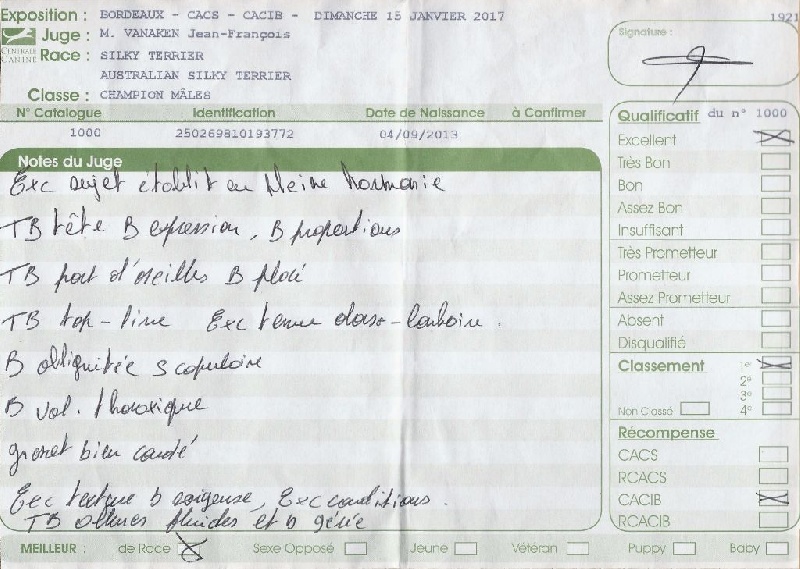 Exposition : BORDEAUX - CACS - CACIB - DIMANCHE 15 JANVIER 2017
1921
Juge : M. VANAKEN Jean-François
CENTRALE CANINE
Race : SILKY TERRIER
AUSTRALIAN SILKY TERRIER
Classe : CHAMPION MÂLES
Signature :
N° Catalogue Identification Date de Naissance à Confirmer
1000 250269810193772 04/09/2013
Notes du Juge
Exc sujet établit en pleine harmonie
TB tête B expression, B proportions
TB port d'oreilles B placé
TB top-line Exc tenue dorso-lombaire.
B obliquitée scapulaire
B vol. thoraxique
bien
Exc texture B soigneuse, Exc conditions.
TB allures fluides et B gérée
Qualificatif du n° 1000
Excellent
Très Bon
Bon
Assez Bon
Insuffisant
Très Prometteur
Prometteur
Assez Prometteur
Absent
Disqualifié
Classement 1er
2e
3e
Non Classé 4e
Récompense
CACS
RCACS
CACIB
RCACIB
MEILLEUR : de Race Sexe Opposé Jeune Vétéran Puppy Baby